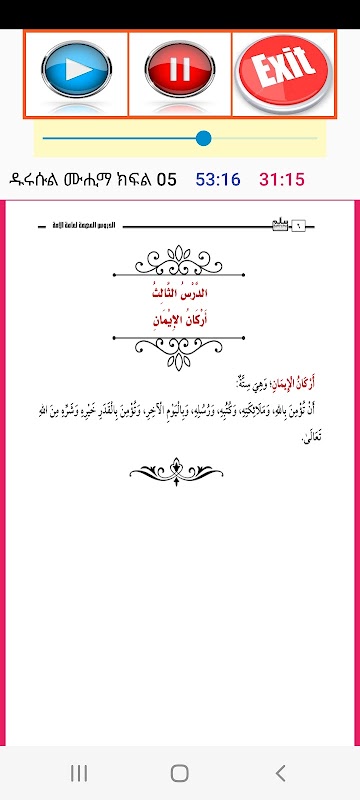 Exit
ዱሩሱል ሙሒማ ክፍል 05 53:16 31:15
٦
الدروس المهمة لعامة الأمة
الدَّرْسُ الثَّالِثُ
أَرْكَانُ الإِيْمَانِ
أَرْكَانُ الإِيمَانِ؛ وَهِيَ سِتَّةٌ:
أَنْ تُؤْمِنَ بِاللهِ، وَمَلَائِكَتِهِ، وَكُتُبِهِ، وَرُسُلِهِ، وَبِالْيَوْمِ الْآخِرِ، وَتُؤْمِنَ بِالْقَدَرِ خَيْرِهِ وَشَرِّهِ مِنَ اللهِ
تَعَالَىٰ.